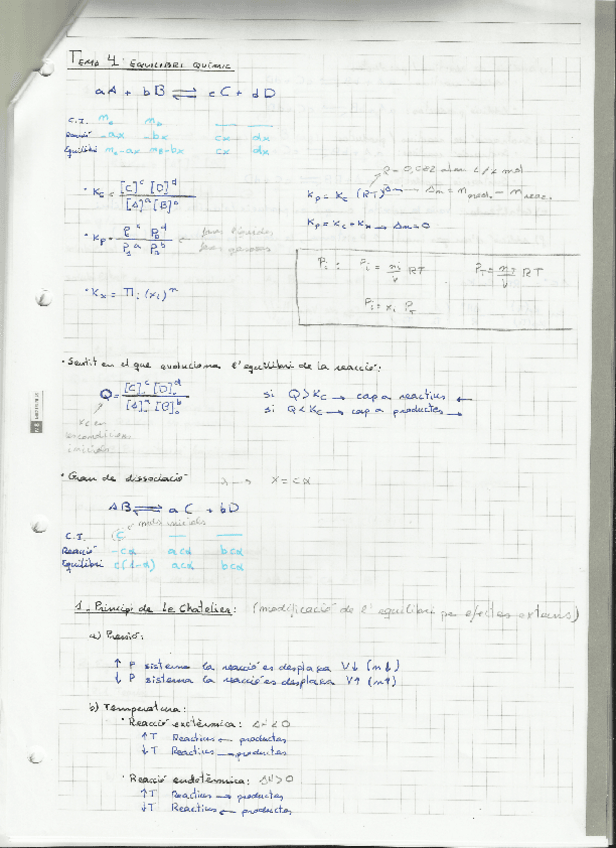 Tema 4: EQUILIBRI QUÍMIC
aA + bB ⇌ cC + dD
C.I. n₀ n₀ — —
Reacció -ax -bx cx dx
Equilibri n₀-ax n₀-bx cx dx
R = 0,082 atm L / K mol
· Kc = [C]^c [D]^d / [A]^a [B]^b
Kp = Kc (RT)^Δn → Δn = n prod. - n reac.
· Kp = Pc^c PD^d / PA^a PB^b
Kp = Kc = Kx → Δn = 0
Pi : Pi = ni/V RT PT = nT/V RT
Pi = xi PT
· Kx = Πi (xi)^n
· Sentit en el que evoluciona l'equilibri de la reacció:
Q = [C]₀^c [D]₀^d / [A]₀^a [B]₀^b
si Q > Kc → cap a reactius ←
si Q < Kc → cap a productes →
condicions
inicials
· Grau de dissociació x = cα
AB ⇌ aC + bD
mols inicials
C.I. C — —
Reacció -cα acα bcα
Equilibri c(1-α) acα bcα
1.- Principi de Le Chatelier: (modificació de l'equilibri per efectes externs)
a) Pressió:
↑ P sistema la reacció es desplaça V↓ (n↓)
↓ P sistema la reacció es desplaça V↑ (n↑)
b) Temperatura:
· Reacció exotèrmica: ΔH < 0
↑T Reactius ← productes
↓T Reactius → productes
· Reacció endotèrmica: ΔH > 0
↑T Reactius → productes
↓T Reactius ← productes